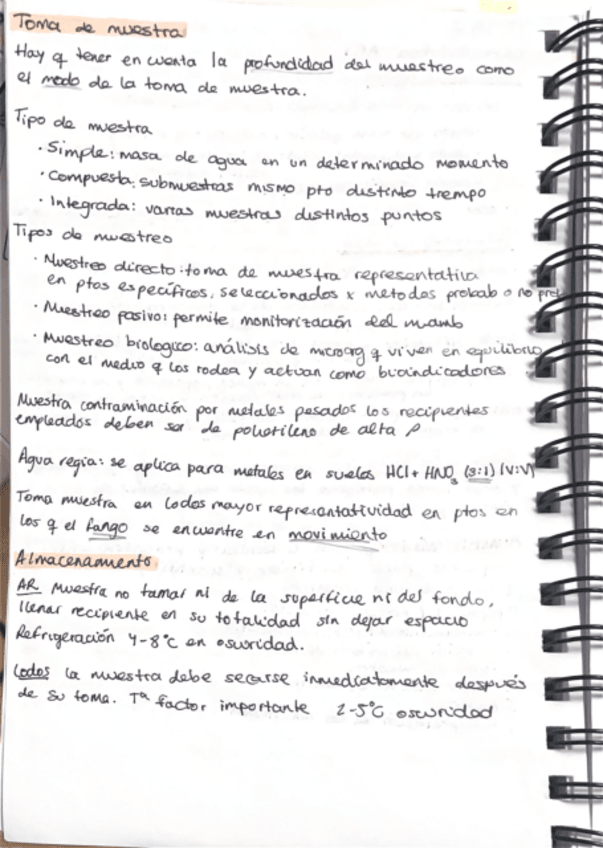 Toma de muestra
Hay q tener en cuenta la profundidad del muestreo como
el modo de la toma de muestra.
Tipo de muestra
· Simple: masa de agua en un determinado momento
· Compuesta: submuestras mismo pto distinto tiempo
· Integrada: varias muestras distintos puntos
Tipos de muestreo
· Muestreo directo: toma de muestra representativa
en ptos específicos, seleccionados x metodos probab o no prob
· Muestreo pasivo: permite monitorización del mamb
· Muestreo biologico: análisis de microog q viven en equilibrio
con el medio q los rodea y actuan como bioindicadores
Muestra contaminación por metales pesados los recipientes
empleados deben ser de polietileno de alta ρ
Agua regia: se aplica para metales en suelos HCl + HNO₃ (3:1) (V:V)
Toma muestra en lodos mayor representatividad en ptos en
los q el fango se encuentre en movimiento
Almacenamiento
AR Muestra no tomar ni de la superficie ni del fondo,
llenar recipiente en su totalidad sin dejar espacio
Refrigeración 4-8°C en oscuridad.
Lodos la muestra debe secarse inmediatamente después
de su toma. Tª factor importante 2-5°C oscuridad